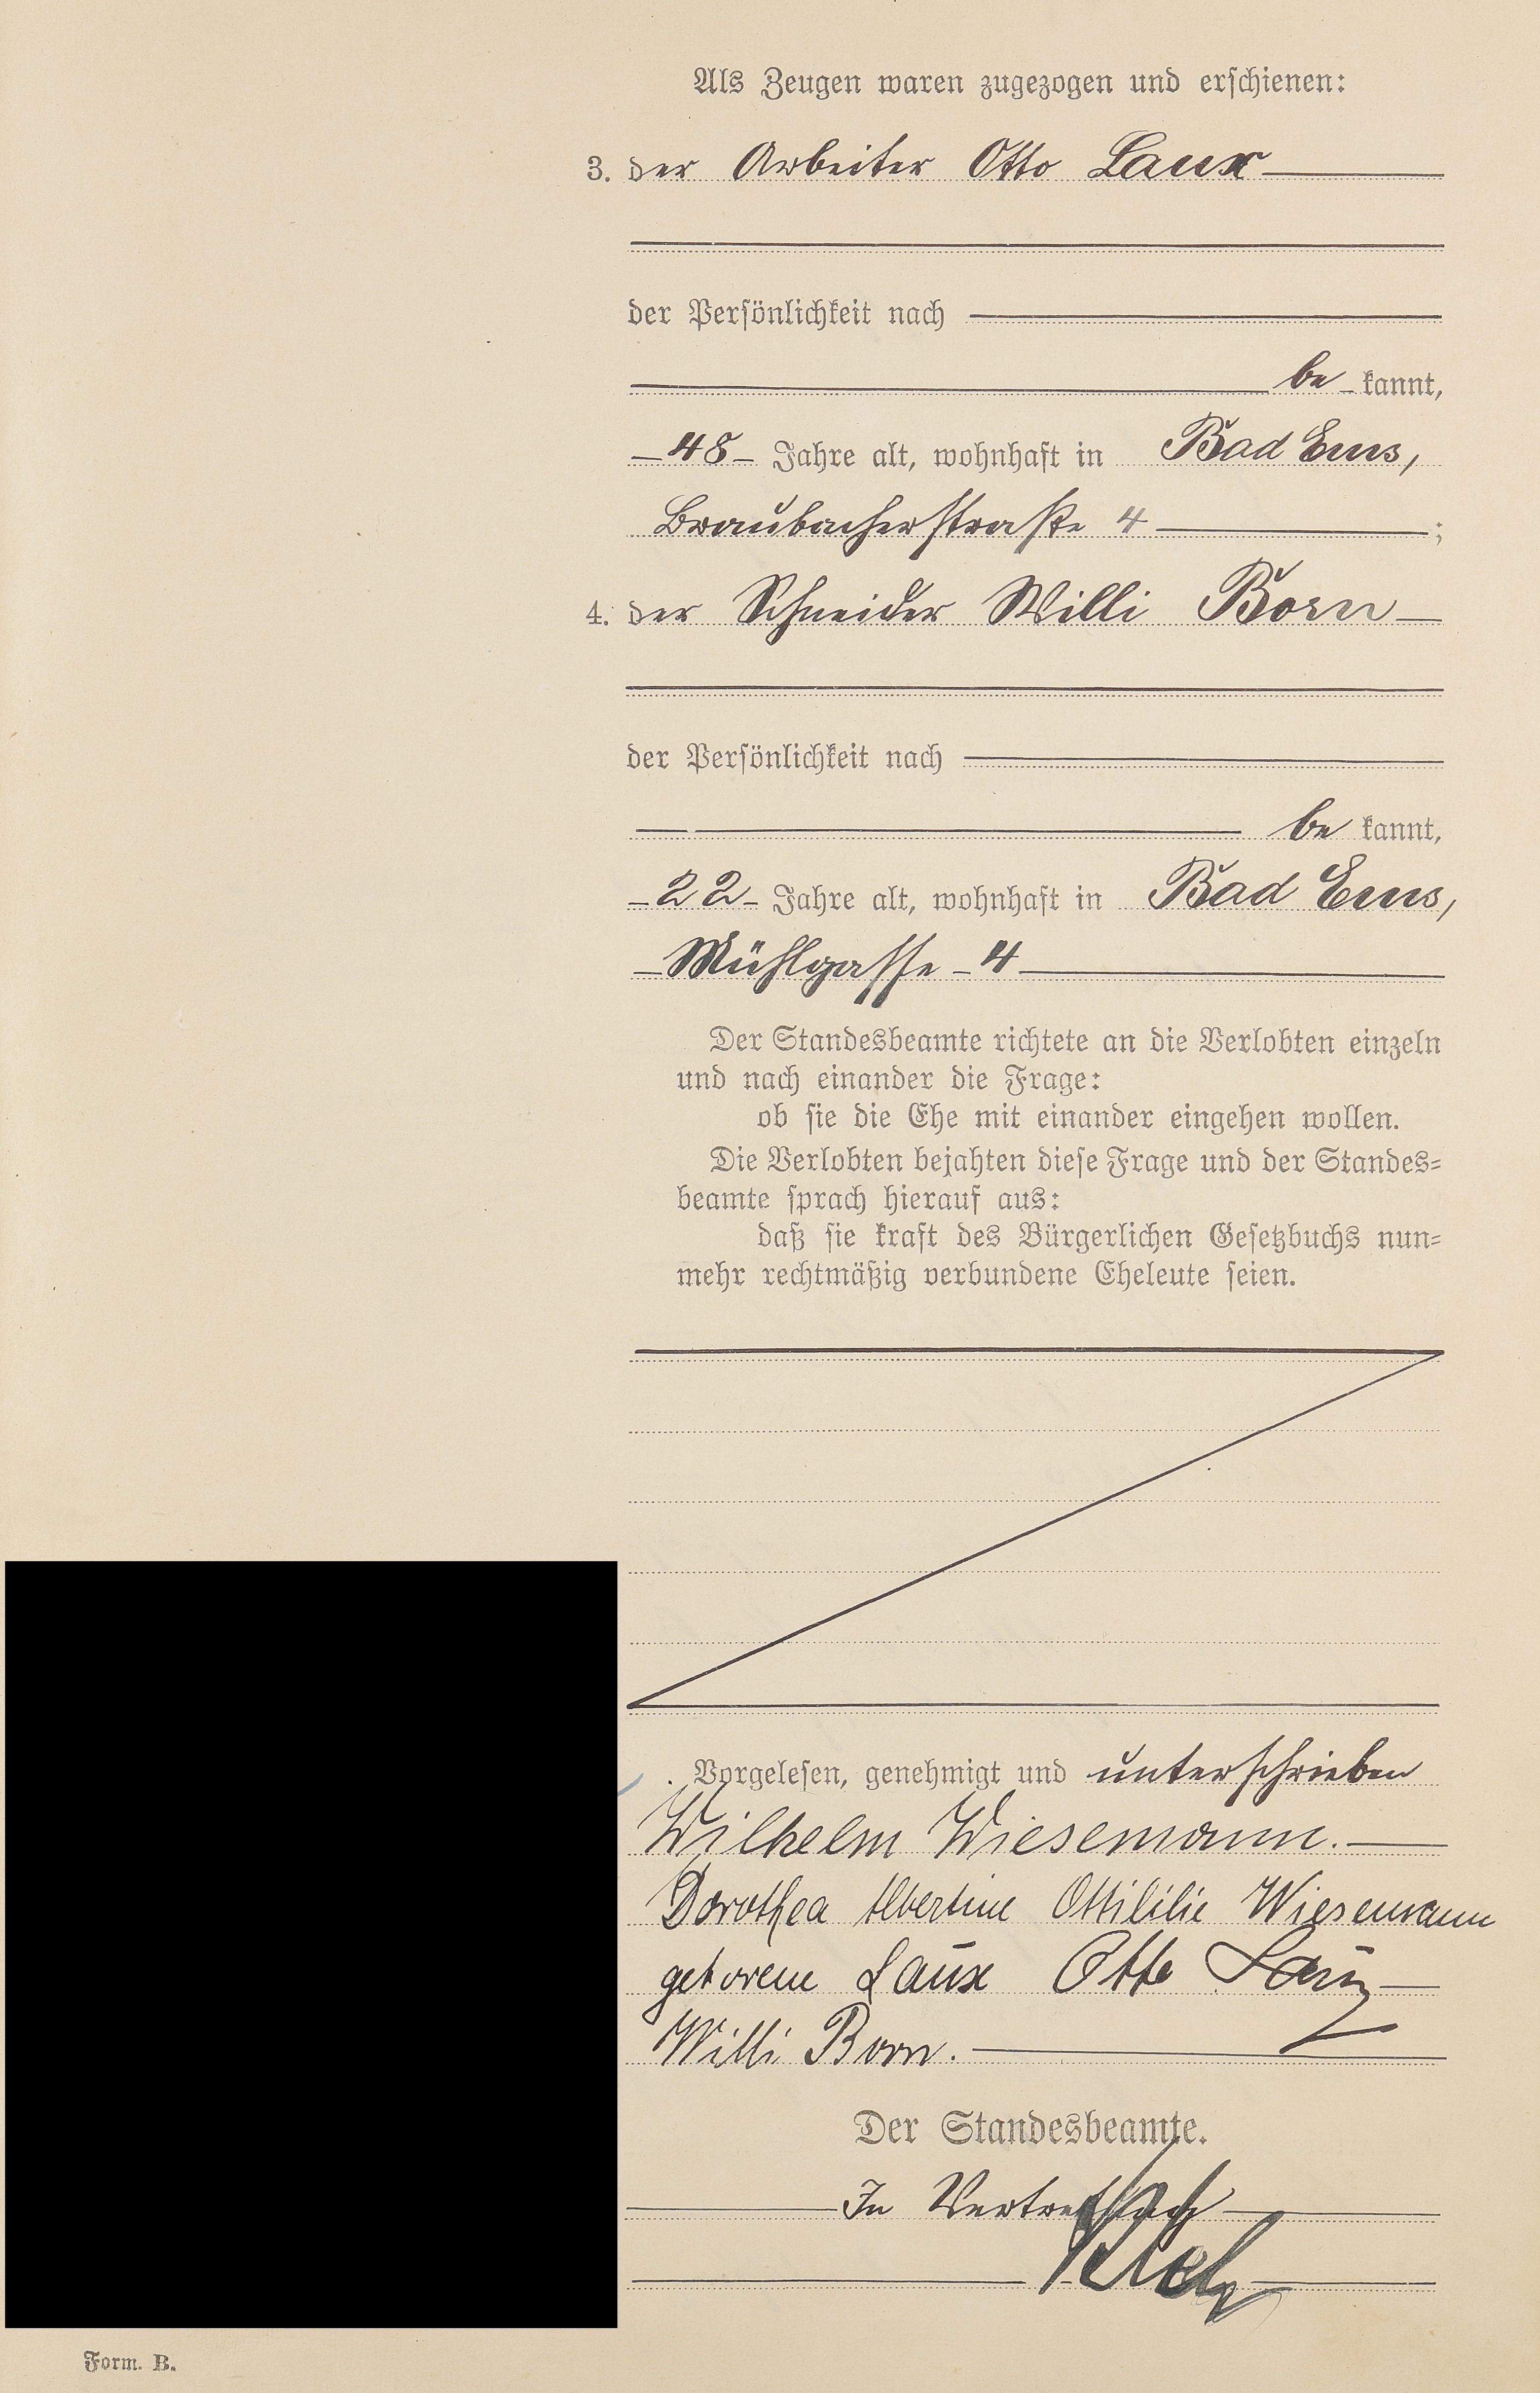 Als Zeugen waren zugezogen und erschienen:
3. der Arbeiter Otto Laux
der Persönlichkeit nach
be kannt,
48 Jahre alt, wohnhaft in Bad Ems,
Braubacherstraße 4 ;
4. der Schneider Willi Born
der Persönlichkeit nach
be kannt,
22 Jahre alt, wohnhaft in Bad Ems,
Mühlgasse 4
Der Standesbeamte richtete an die Verlobten einzeln
und nach einander die Frage:
ob sie die Ehe mit einander eingehen wollen.
Die Verlobten bejahten diese Frage und der Standes-
beamte sprach hierauf aus:
daß sie kraft des Bürgerlichen Gesetzbuchs nun-
mehr rechtmäßig verbundene Eheleute seien.
Vorgelesen, genehmigt und unterschrieben
Wilhelm Wiesemann.
Dorothea Albertine Ottililie Wiesemann
geborene Laux Otto Laux
Willi Born.
Der Standesbeamte.
In Vertretung
Form. B.